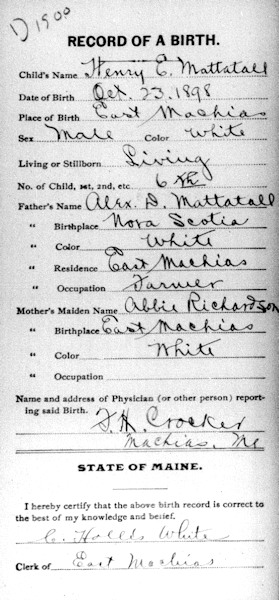 D 1900
RECORD OF A BIRTH.
Child's Name Henry E. Mattatall
Date of Birth Oct. 23. 1898
Place of Birth East Machias
Sex Male Color White
Living or Stillborn Living
No. of Child, 1st, 2nd, etc 6th
Father's Name Alex. D. Mattatall
" Birthplace Nova Scotia
" Color White
" Residence East Machias
" Occupation Farmer
Mother's Maiden Name Abbie Richardson
" Birthplace East Machias
" Color White
" Occupation
Name and address of Physician (or other person) report-
ing said Birth.
F. H. Crocker
Machias, Me
STATE OF MAINE.
I hereby certify that the above birth record is correct to
the best of my knowledge and belief.
C. Hollis White
Clerk of East Machias